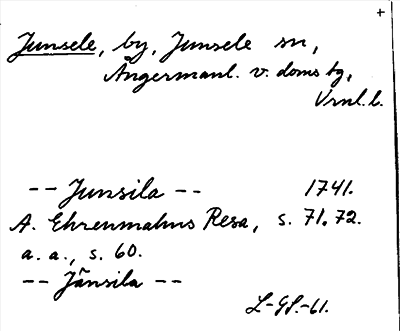 +
Junsele, by, Junsele sn,
Ångermanl. v. doms bg,
Vrnl. l.
-- Junsila -- 1741.
A. Ehrenmalms Resa, s. 71. 72.
a. a., s. 60.
-- Jånsila --
L-GS.-61.